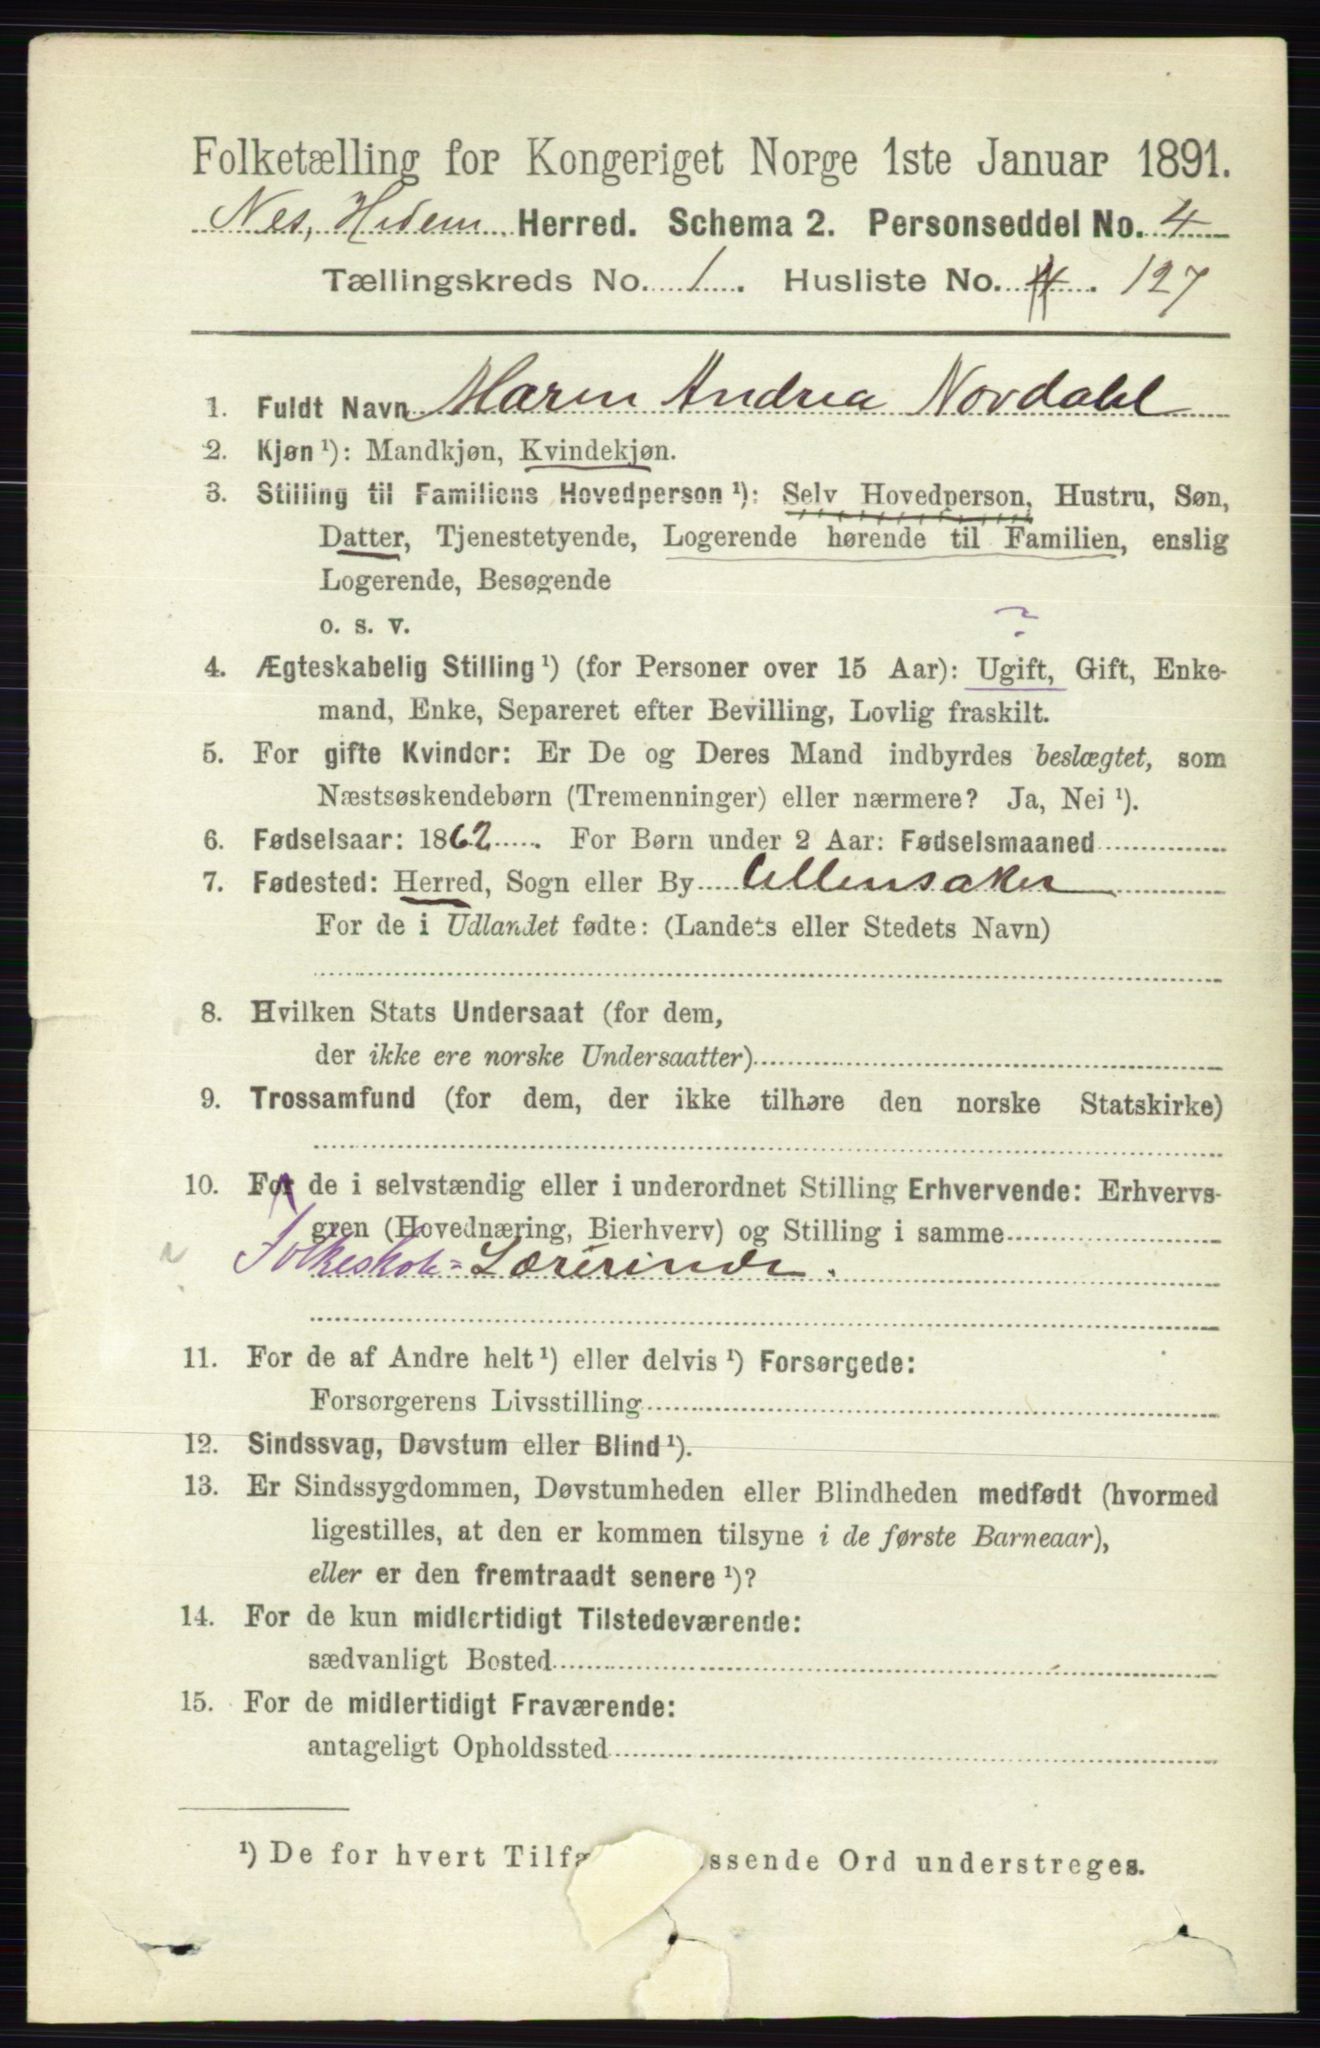 Folketælling for Kongeriget Norge 1ste Januar 1891.
Nes, Hedem. Herred. Schema 2. Personseddel No. 4
Tællingskreds No. 1. Husliste No. 127
1. Fuldt Navn Maren Andrea Nordahl
2. Kjøn ¹): Mandkjøn, Kvindekjøn.
3. Stilling til Familiens Hovedperson ¹): Selv Hovedperson, Hustru, Søn,
Datter, Tjenestetyende, Logerende hørende til Familien, enslig
Logerende, Besøgende
o. s. v.
?
4. Ægteskabelig Stilling ¹) (for Personer over 15 Aar): Ugift, Gift, Enke-
mand, Enke, Separeret efter Bevilling, Lovlig fraskilt.
5. For gifte Kvinder: Er De og Deres Mand indbyrdes beslægtet, som
Næstsøskendebørn (Tremenninger) eller nærmere? Ja, Nei ¹).
6. Fødselsaar: 1862. For Børn under 2 Aar: Fødselsmaaned
7. Fødested: Herred, Sogn eller By Ullensaker
For de i Udlandet fødte: (Landets eller Stedets Navn)
8. Hvilken Stats Undersaat (for dem,
der ikke ere norske Undersaatter)
9. Trossamfund (for dem, der ikke tilhøre den norske Statskirke)
10. For de i selvstændig eller i underordnet Stilling Erhvervende: Erhvervs-
gren (Hovednæring, Bierhverv) og Stilling i samme
Folkeskole= Lærerinde.
11. For de af Andre helt ¹) eller delvis ¹) Forsørgede:
Forsørgerens Livsstilling
12. Sindssvag, Døvstum eller Blind ¹).
13. Er Sindssygdommen, Døvstumheden eller Blindheden medfødt (hvormed
ligestilles, at den er kommen tilsyne i de første Barneaar),
eller er den fremtraadt senere ¹)?
14. For de kun midlertidigt Tilstedeværende:
sædvanligt Bosted
15. For de midlertidigt Fraværende:
antageligt Opholdssted
¹) De for hvert Tilfæ ssende Ord understreges.